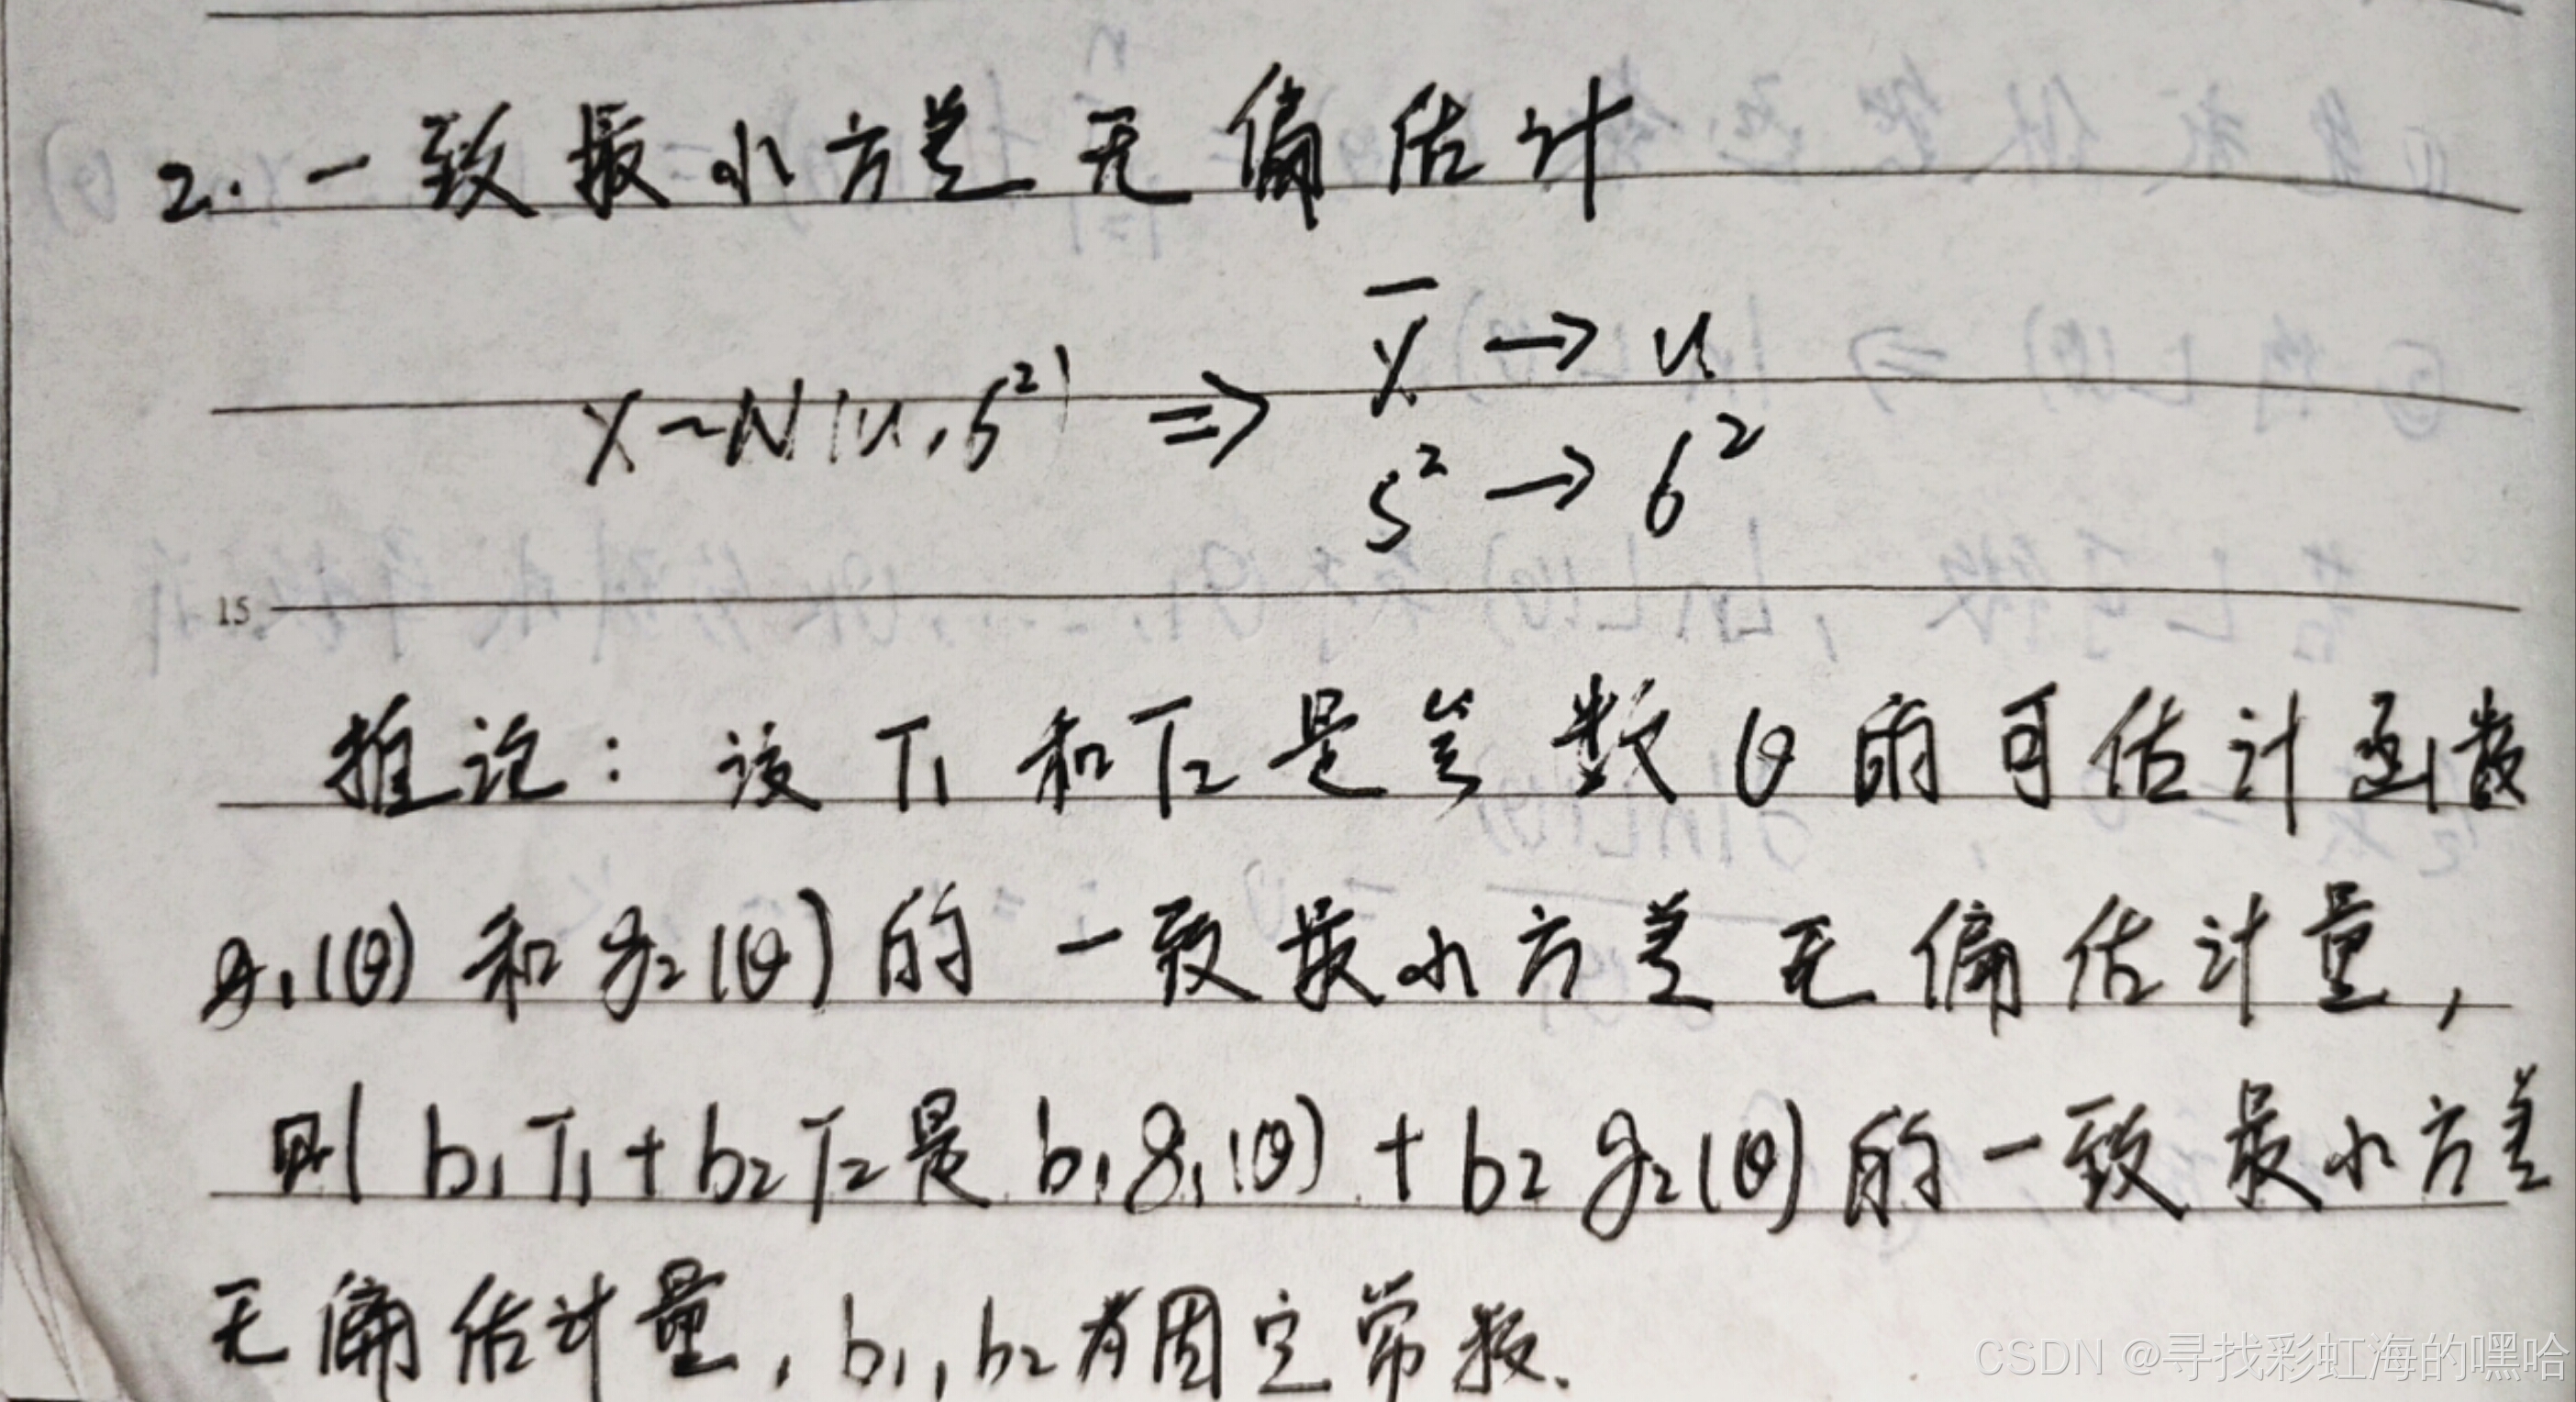 2. 一致最小方差无偏估计
X~N(μ,σ²) ⇒ X̄ → μ
S² → σ²
15
推论：设 T₁ 和 T₂ 是参数 θ 的可估计函数
g₁(θ) 和 g₂(θ) 的一致最小方差无偏估计量，
则 b₁T₁+b₂T₂ 是 b₁g₁(θ) + b₂g₂(θ) 的一致最小方差
无偏估计量，b₁,b₂为固定常数.
CSDN @寻找彩虹海的嘿哈